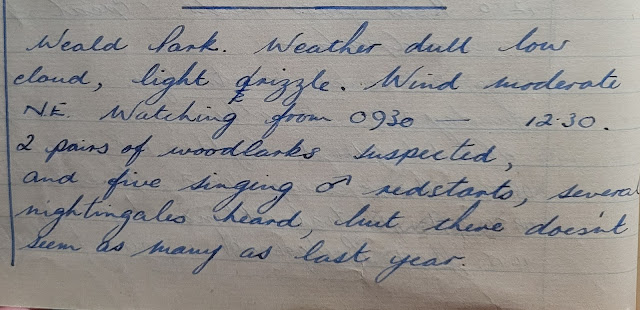 Weald Park. Weather dull low
cloud, light drizzle. Wind moderate
N.E. Watching from 0930 — 12.30.
2 pairs of woodlarks suspected,
and five singing ♂ redstarts, several
nightingales heard, but there doesn't
seem as many as last year.